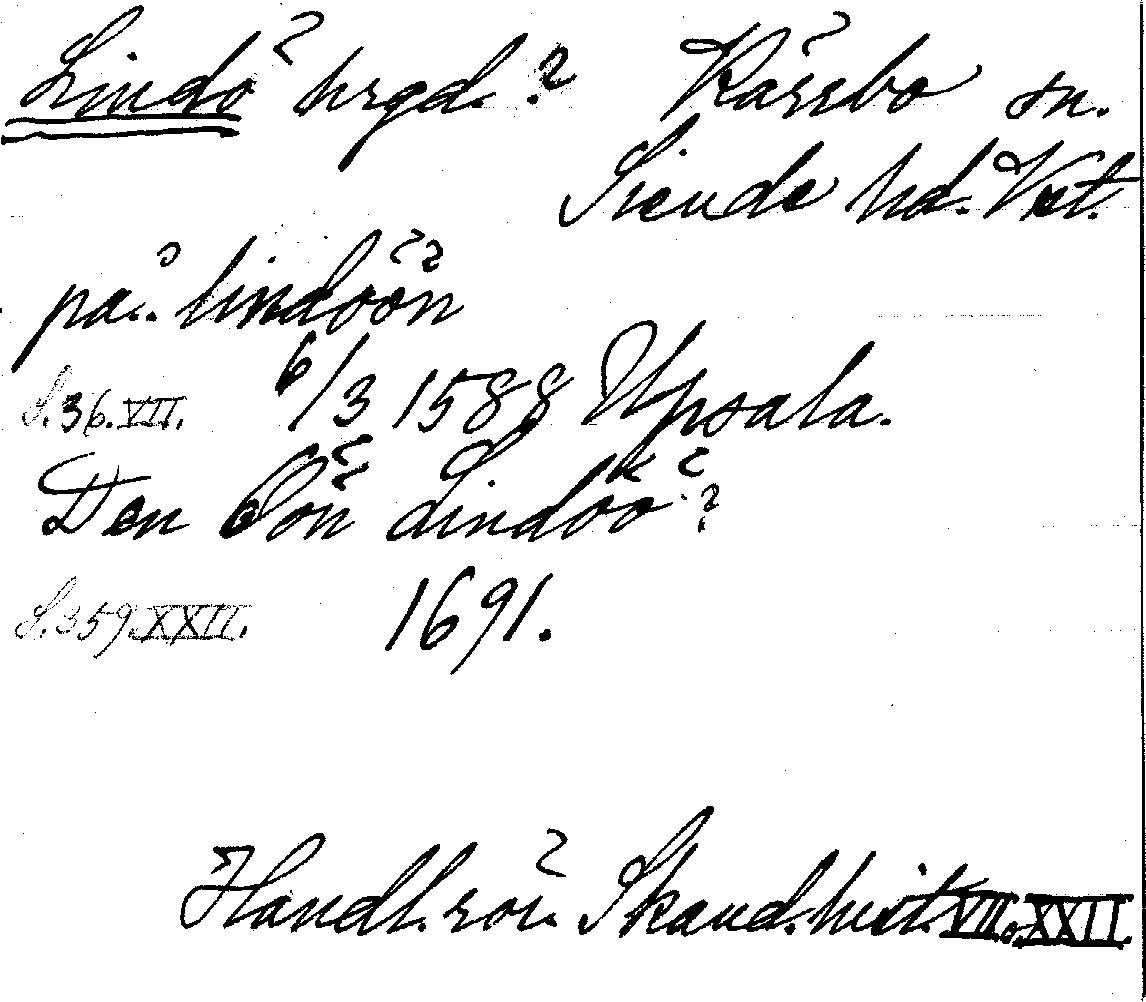 Lindö hrgd.? Kärrbo sn.
Siende hd. Vstl.
på.. lindöön
S. 36. VII. 6/3 1588 Upsala.
Den Öön Lindöö?
S. 359. XXII. 1691.
Handl. rör. Skand. hist. VII. o. XXII.